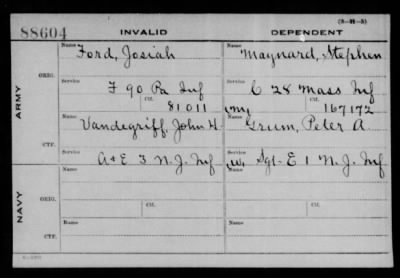 (3-M-3)
88604 INVALID DEPENDENT
ARMY
ORIG.
Name Ford, Josiah
Name Maynard, Stephen
Service F 90 Pa Inf
Service C 28 Mass Inf
Ctf. 81011
Ctf. 167172
CTF.
Name Vandegriff, John H
Name Grum, Peter A.
Service A + E 3 N.J. Inf
Service Sgt- E 1 N.J. Inf
NAVY
ORIG.
Name
Name
Service
Ctf.
Service
Ctf.
CTF.
Name
Name